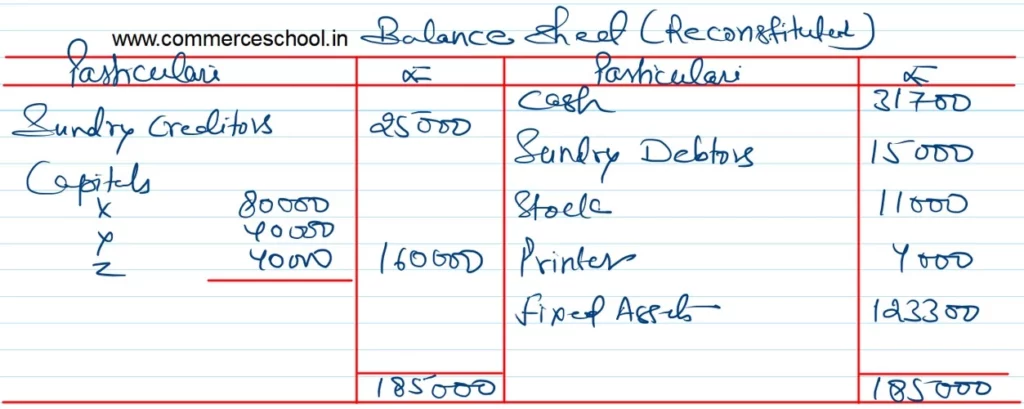 www.commerceschool.in Balance Sheet (Reconstituted)
Particulars ₹ Particulars ₹
Cash 31700
Sundry Creditors 25000
Sundry Debtors 15000
Capitals
X 80000 Stock 11000
Y 40000
Z 40000 160000 Printer 4000
Fixed Assets 123300
185000 185000